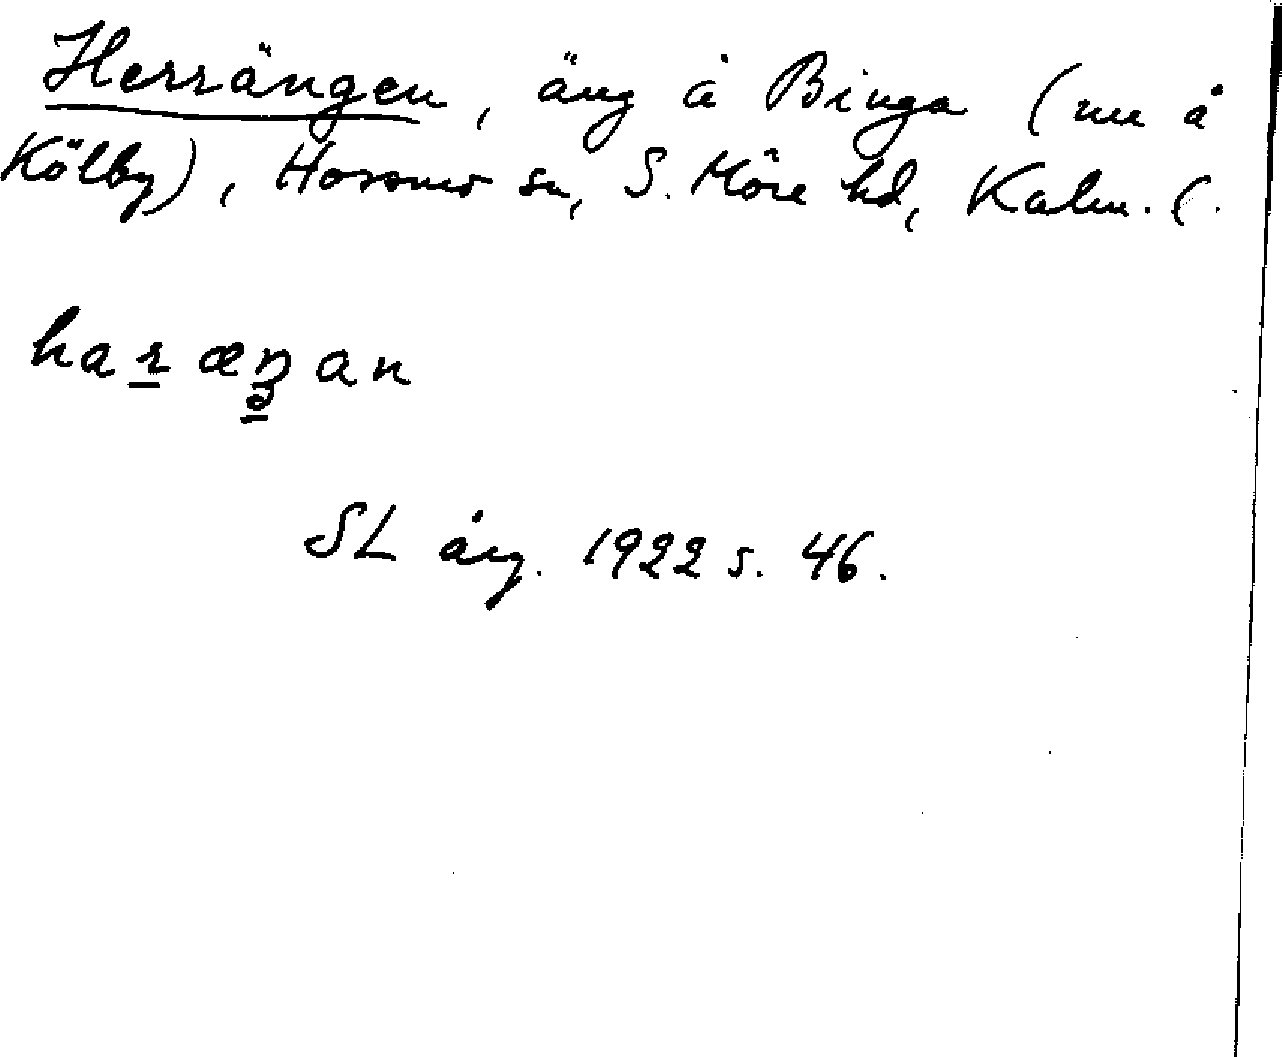 Herrängen, äng å Binga (nu å
Kölby), Hossmo sn, S. Möre hd, Kalm. (.
haræŋan
SL årg. 1922 s. 46.